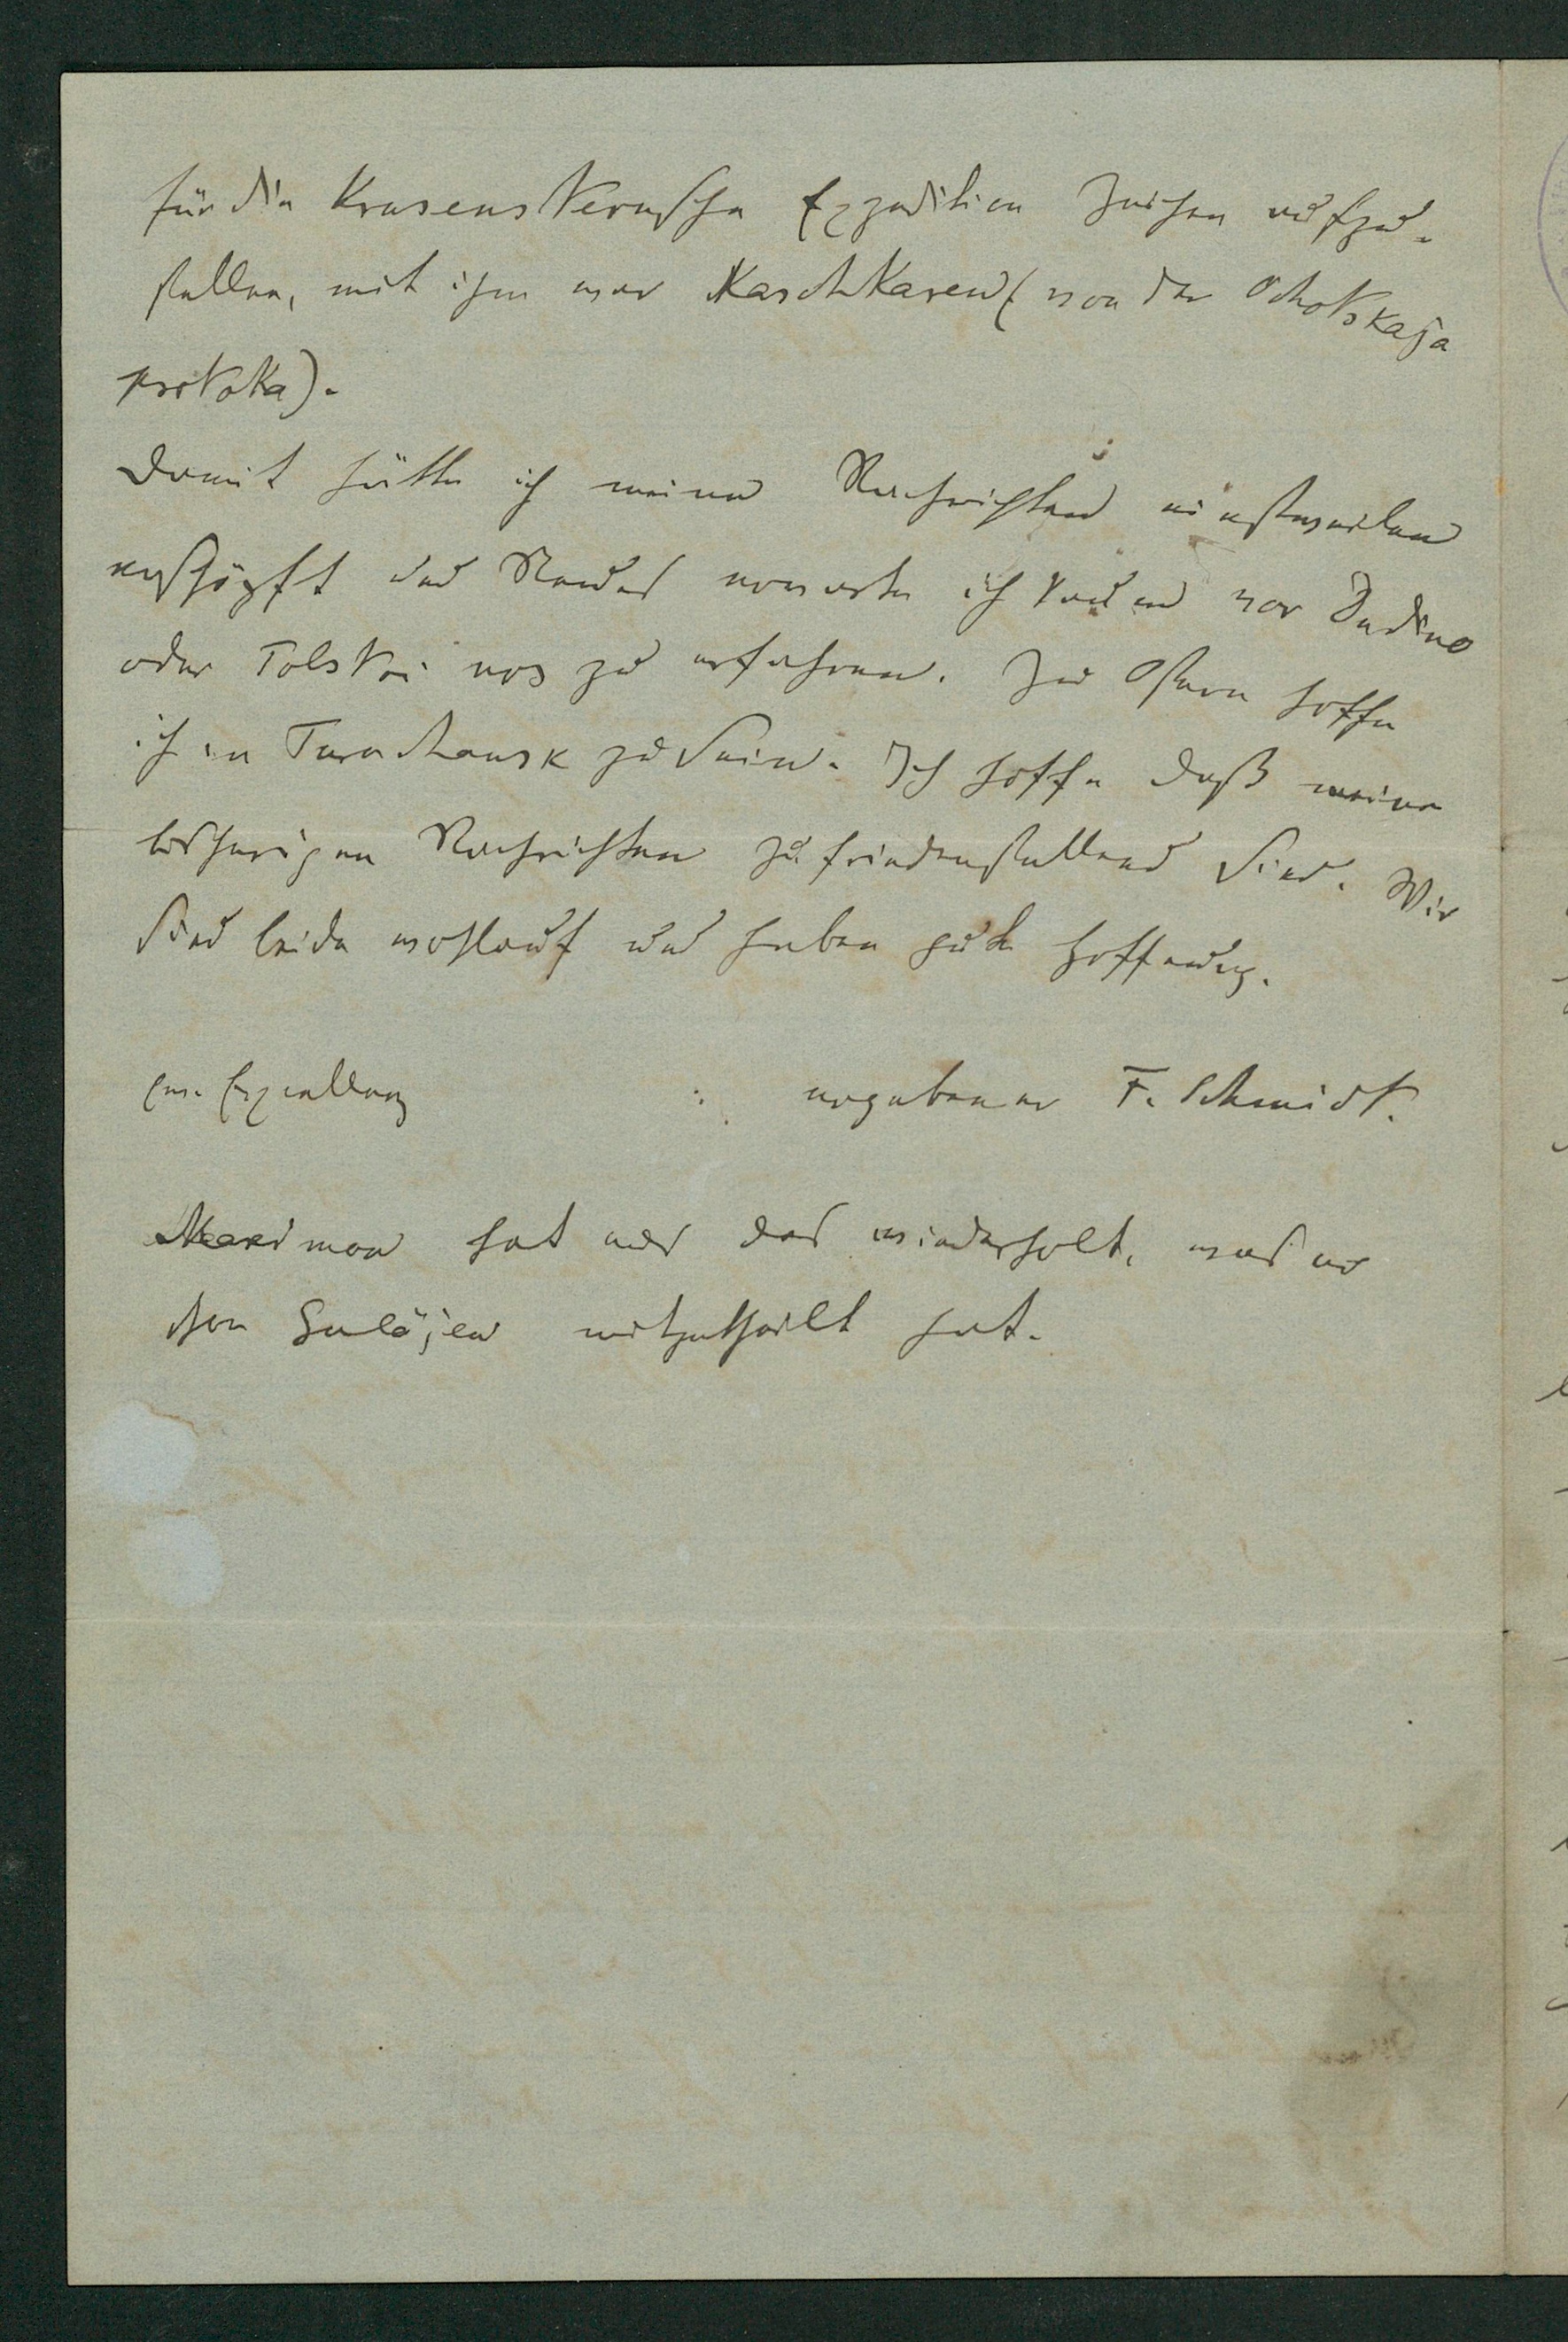 für die Krusensternsche Expedition Zeichen aufzu-
stellen, mit ihm war Kaschkarew (von der Ochotskaja
protoka).
Damit hätte ich meine Nachrichten einstweilen
erschöpft und Neues erwarte ich kaum vor Dudino
oder Tolstoi nos zu erfahren. Zu Ostern hoffe
ich in Turuchansk zu sein. Ich hoffe daß meine
bisherigen Nachrichten zufriedenstellend sind. Wir
sind beide wohlauf und haben gute Hoffnung.
Ew. Excellenz
ergebener F. Schmidt.
hat nur das wiederholt, was er
schon mitgetheilt hat.